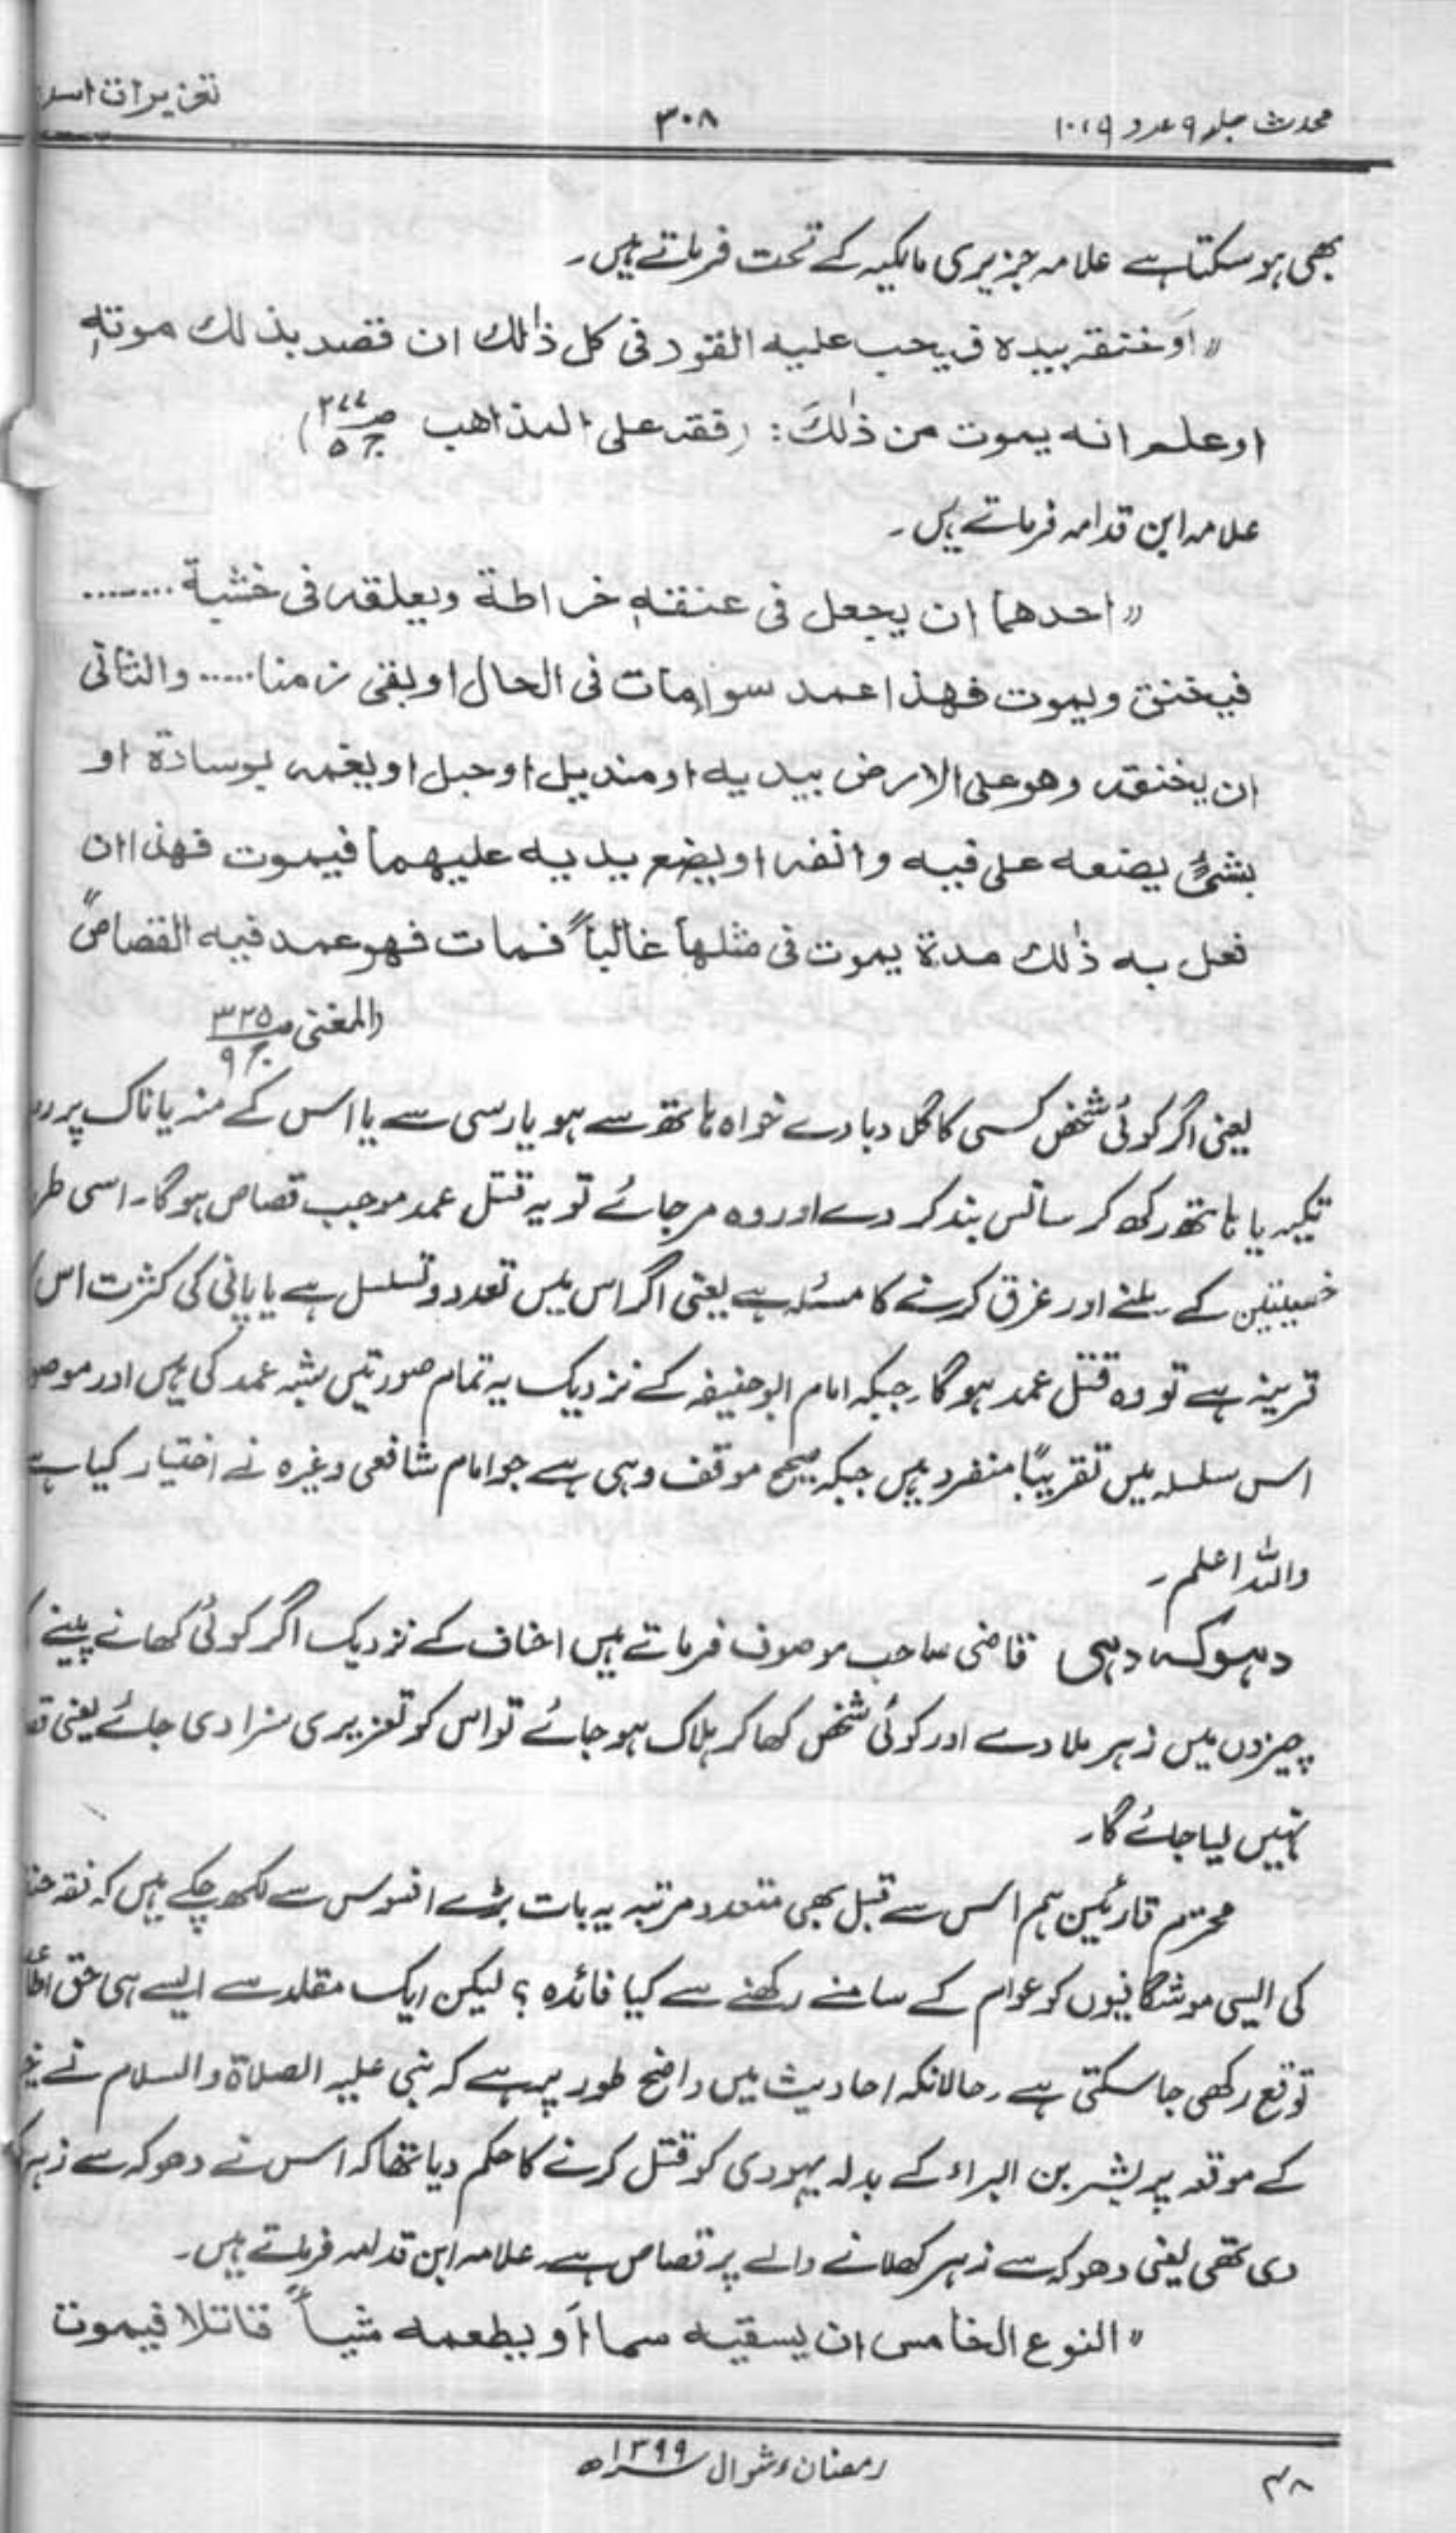 محدث جلد ۹ عدد ۹، ۱۰
۳۰۸
تعزیرات
بھی ہو سکتا ہے علامہ جزیری مالکیہ کے تحت فرماتے ہیں۔
"اَو خنقہ بیدہ فیجب علیہ القود فی کل ذٰلک ان قصد بذلک موتہٖ
او علم انہ یموت من ذٰلکَ: (فقہ علی المذاهب ص۲۷۷ ج۵)
علامہ ابن قدامہ فرماتے ہیں۔
"احدهما ان یجعل فی عنقہٖ خراطة ویعلقہ فی خشبة ........
فیختنق ویموت فھذا عمد سوا مات فی الحال او بقی زمنا ..... والثانی
ان یخنقہ وھو علی الارض بیدیہ او مندیل او حبل او یغمہ بوسادة او
بشیٔ یضعہ علی فیہ وانفہ او یضع یدیہ علیهما فیموت فهذا ان
فعل بہ ذٰلک مدة یموت فی مثلها غالباً فمات فھو عمد فیہ القصاص"
(المغنی ص۳۲۵ ج۹
یعنی اگر کوئی شخص کسی کا گلا دبا دے خواہ ہاتھ سے ہو یا رسی سے یا اس کے منہ یا ناک پر
تکیہ یا ہاتھ رکھ کر سانس بند کر دے اور وہ مر جائے تو یہ قتل عمد موجب قصاص ہو گا۔ اسی
خصیتین کے ملنے اور غرق کرنے کا مسئلہ ہے یعنی اگر اس میں تعدد و تسلسل ہے یا پانی کی کثرت اس
قرینہ ہے تو وہ قتل عمد ہو گا۔ جبکہ امام ابو حنیفہ کے نزدیک یہ تمام صورتیں شبہ عمد کی ہیں اور
اس سلسلہ میں تقریباً منفرد ہیں جبکہ صحیح موقف وہی ہے جو امام شافعی وغیرہ نے اختیار کیا ہے
واللہ اعلم۔
دہوکہ دہی قاضی صاحب موصوف فرماتے ہیں احناف کے نزدیک اگر کوئی کھانے پینے
چیزوں میں زہر ملا دے اور کوئی شخص کھا کر ہلاک ہو جائے تو اس کو تعزیری سزا دی جائے یعنی
نہیں لیا جائے گا۔
محترم قارئین ہم اس سے قبل بھی متعدد مرتبہ یہ بات بڑے افسوس سے لکھ چکے ہیں کہ فقہ
کی ایسی موشگافیوں کو عوام کے سامنے رکھنے سے کیا فائدہ؟ لیکن ایک مقلد سے ایسے ہی حق
توقع رکھی جا سکتی ہے۔ حالانکہ احادیث میں واضح طور پر ہے کہ نبی علیہ الصلاة والسلام نے
کے موقعہ پر بشر بن البراء کے بدلہ یہودی کو قتل کرنے کا حکم دیا تھا کہ اس نے دھوکہ سے زہر
دی تھی یعنی دھوکہ سے زہر کھلانے والے پر قصاص ہے۔ علامہ ابن قدامہ فرماتے ہیں۔
"النوع الخامس ان یسقیہ سما اَو یطعمہ شیاً قاتلا فیموت
رمضان، شوال ۱۳۹۹ھ
۴۸